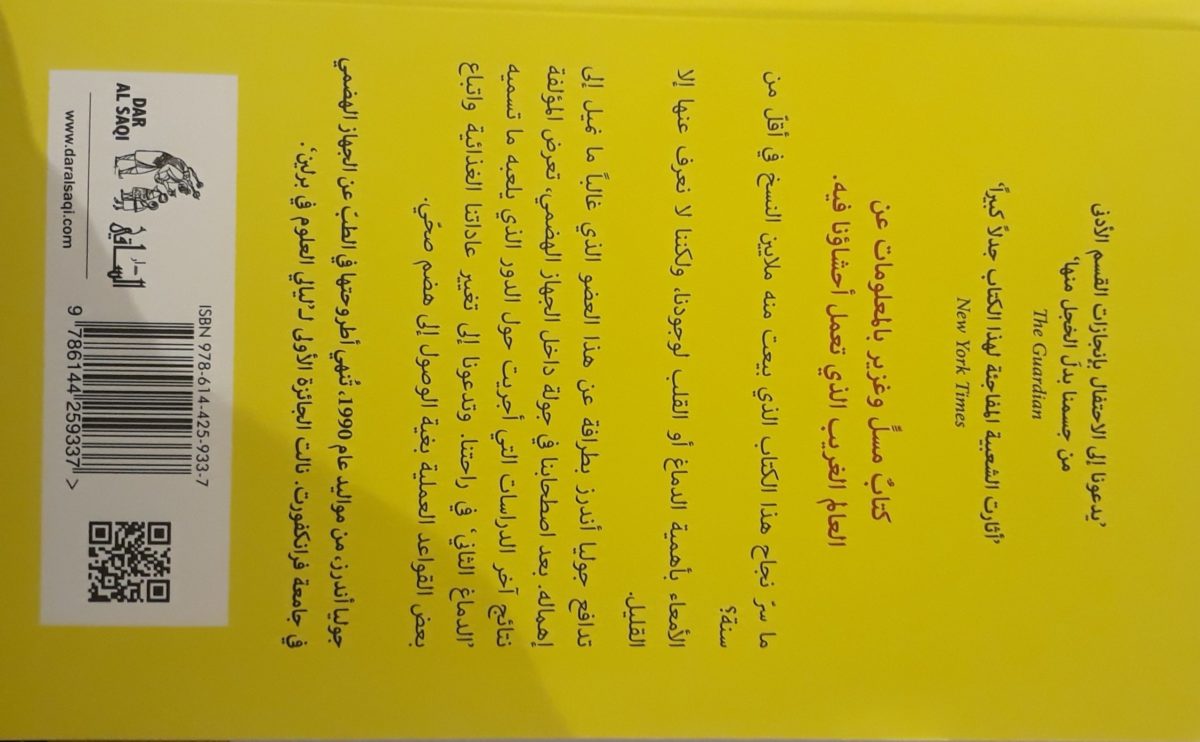 ’يدعونا إلى الاحتفال بإنجازات القسم الأدنى
من جسمنا بدل الخجل منها‘
The Guardian
’أثارت الشعبية المفاجئة لهذا الكتاب جدلاً كبيراً‘
New York Times
كتابٌ مسلٍّ وغزير بالمعلومات عن
العالم الغريب الذي تعمل أحشاؤنا فيه.
ما سرّ نجاح هذا الكتاب الذي بيعت منه ملايين النسخ في أقلّ من
سنة؟
الأمعاء بأهمية الدماغ أو القلب لوجودنا، ولكننا لا نعرف عنها إلا
القليل.
تدافع جوليا أندرز بطرافة عن هذا العضو الذي غالباً ما نميل إلى
إهماله. بعد اصطحابنا في جولة داخل الجهاز الهضمي، تعرض المؤلفة
نتائج آخر الدراسات التي أجريت حول الدور الذي يلعبه ما تسميه
’الدماغ الثاني‘ في راحتنا. وتدعونا إلى تغيير عاداتنا الغذائية واتباع
بعض القواعد العملية بغية الوصول إلى هضم صحّي.
جوليا أندرز، من مواليد عام 1990، تُنهي أطروحتها في الطبّ عن الجهاز الهضمي
في جامعة فرانكفورت. نالت الجائزة الأولى لـ’ليالي العلوم في برلين‘.
DAR
AL SAQI
دار
الساقي
www.daralsaqi.com
ISBN 978-614-425-933-7
9 786144 259337 >